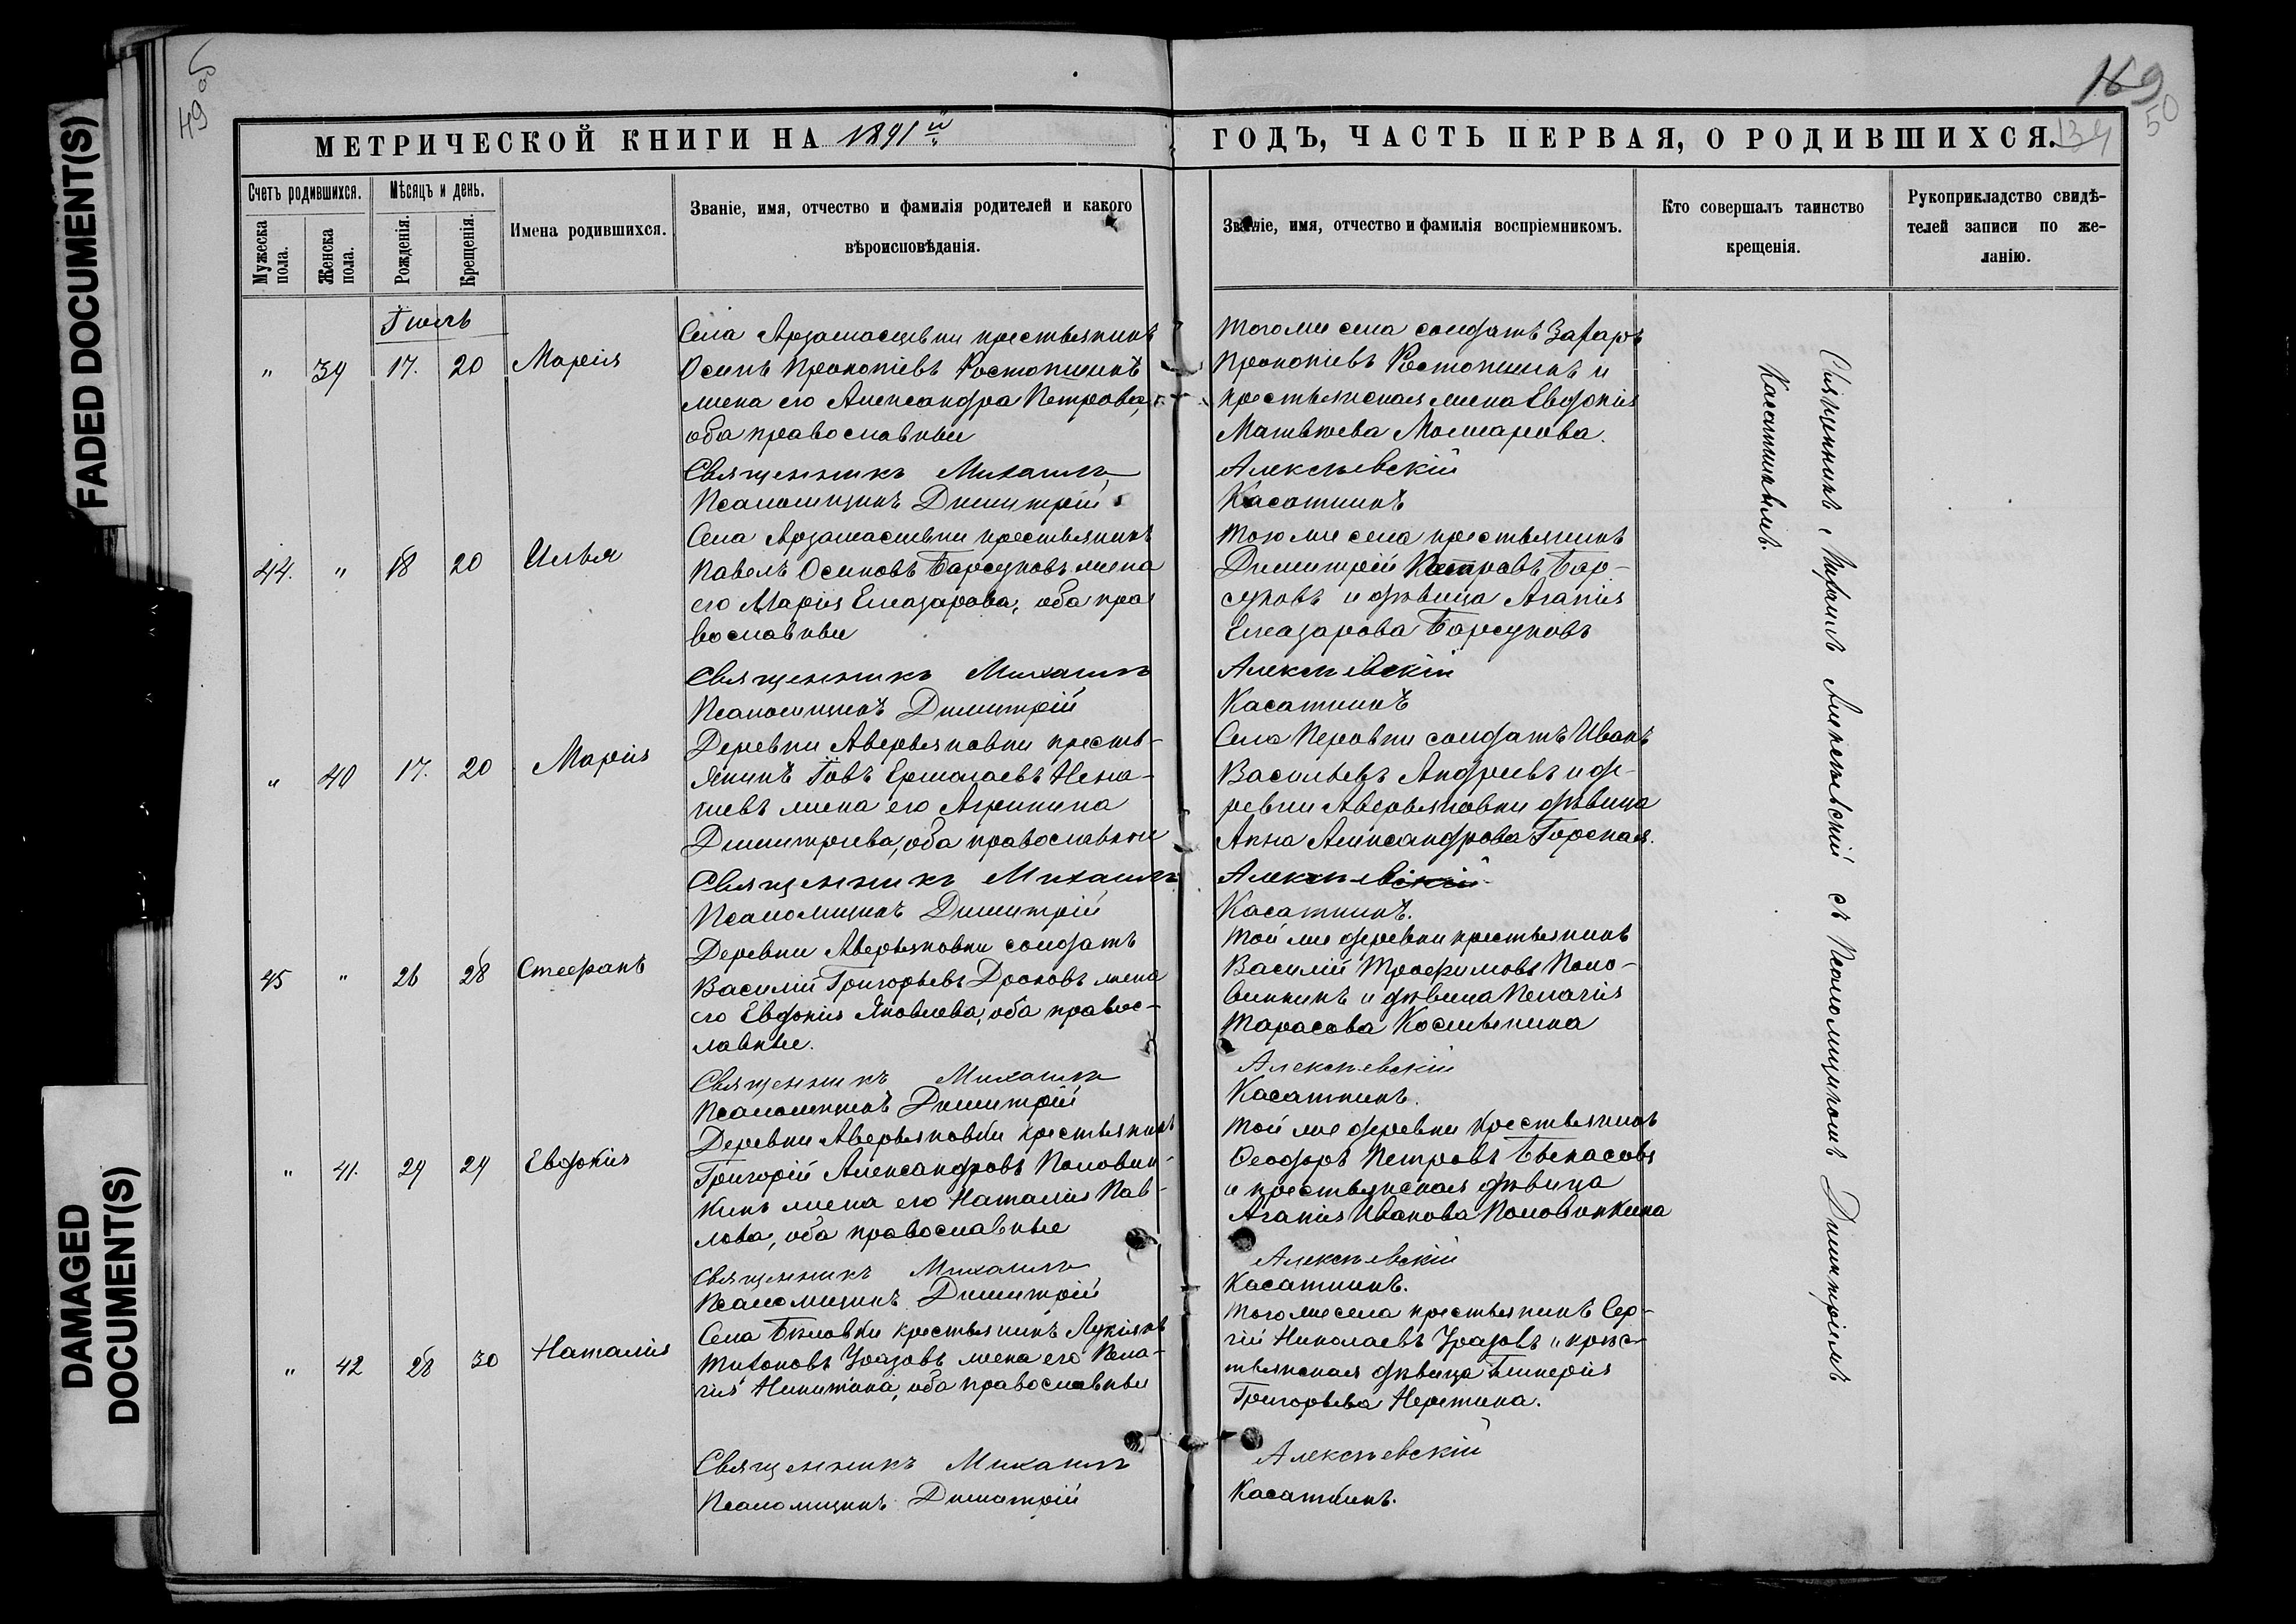 FADED DOCUMENT(S)
DAMAGED
DOCUMENT(S)
49 об
169
50
134
МЕТРИЧЕСКОЙ КНИГИ НА 1891й
ГОДЪ, ЧАСТЬ ПЕРВАЯ, О РОДИВШИХСЯ.
Счетъ родившихся.
Мужеска пола.
Женска пола.
Мѣсяцъ и день.
Рожденія.
Крещенія.
Имена родившихся.
Званіе, имя, отчество и фамилія родителей и какого
вѣроисповѣданія.
Званіе, имя, отчество и фамилія воспріемниковъ.
Кто совершалъ таинство
крещенія.
Рукоприкладство свидѣ-
телей записи по же-
ланію.
Іюль
" 39 17. 20 Марія
Села Арзамасцевки крестьянинъ
Осипъ Прокопіевъ Ростопшинъ
жена его Александра Петрова,
оба православные
Священникъ Михаилъ
Псаломщикъ Димитрій
Тогоже села солдатъ Захаръ
Прокопіевъ Ростопшинъ и
крестьянская жена Евдокія
Матвѣева
Алексѣевскій
Касаткинъ
44. " 18 20 Илья
Села Арзамасцевки крестьянинъ
Павелъ Осиповъ Барсуковъ жена
его Марія Елизарова, оба пра
вославные
Священникъ Михаилъ
Псаломщикъ Димитрій
Того же села крестьянинъ
Димитрій Петровъ Бар-
суковъ и дѣвица Агапія
Елизарова Барсуковъ
Алексѣевскій
Касаткинъ
" 40 17. 20 Марія
Деревни Аверьяновки кресть-
янинъ Іовъ Ермолаевъ Нена-
шевъ жена его Агрипина
Димитріева, оба православные
Священникъ Михаилъ
Псаломщикъ Димитрій
Села Перовки солдатъ Иванъ
Васильевъ Андреевъ и де-
ревни Аверьяновки дѣвица
Анна Александрова Горская.
Алексѣевскій
Касаткинъ.
45 " 26 28 Стефанъ
Деревни Аверьяновки солдатъ
Василій Григорьевъ Дроновъ жена
его Евдокія Яковлева, оба правос-
лавные.
Священникъ Михаилъ
Псаломщикъ Димитрій
Той же деревни крестьянинъ
Василій Трофимовъ Поло-
винкинъ и дѣвица Пелагія
Тарасова
Алексѣевскій
Касаткинъ.
" 41. 29 29 Евдокія
Деревни Аверьяновки крестьянинъ
Григорій Александровъ Половин-
кинъ жена его Наталія Пав-
лова, оба православные
Священникъ Михаилъ
Псаломщикъ Димитрій
Той же деревни крестьянинъ
Феодоръ Петровъ Бекасовъ
и крестьянская дѣвица
Агапія Иванова Половинкина
Алексѣевскій
Касаткинъ.
" 42 28 30 Наталія
Села Бѣловки крестьянинъ Лукіянъ
Тихоновъ Уразовъ жена его Пела-
гія Никитина, оба православные
Священникъ Михаилъ
Псаломщикъ Димитрій
Того же села крестьянинъ Сер-
гій Николаевъ Уразовъ и крес-
тьянская дѣвица Гликерія
Григорьева Неретина.
Алексѣевскій
Касаткинъ.
Священникъ Михаилъ Алексѣевскій съ Псаломщикомъ Димитріемъ
Касаткинымъ.